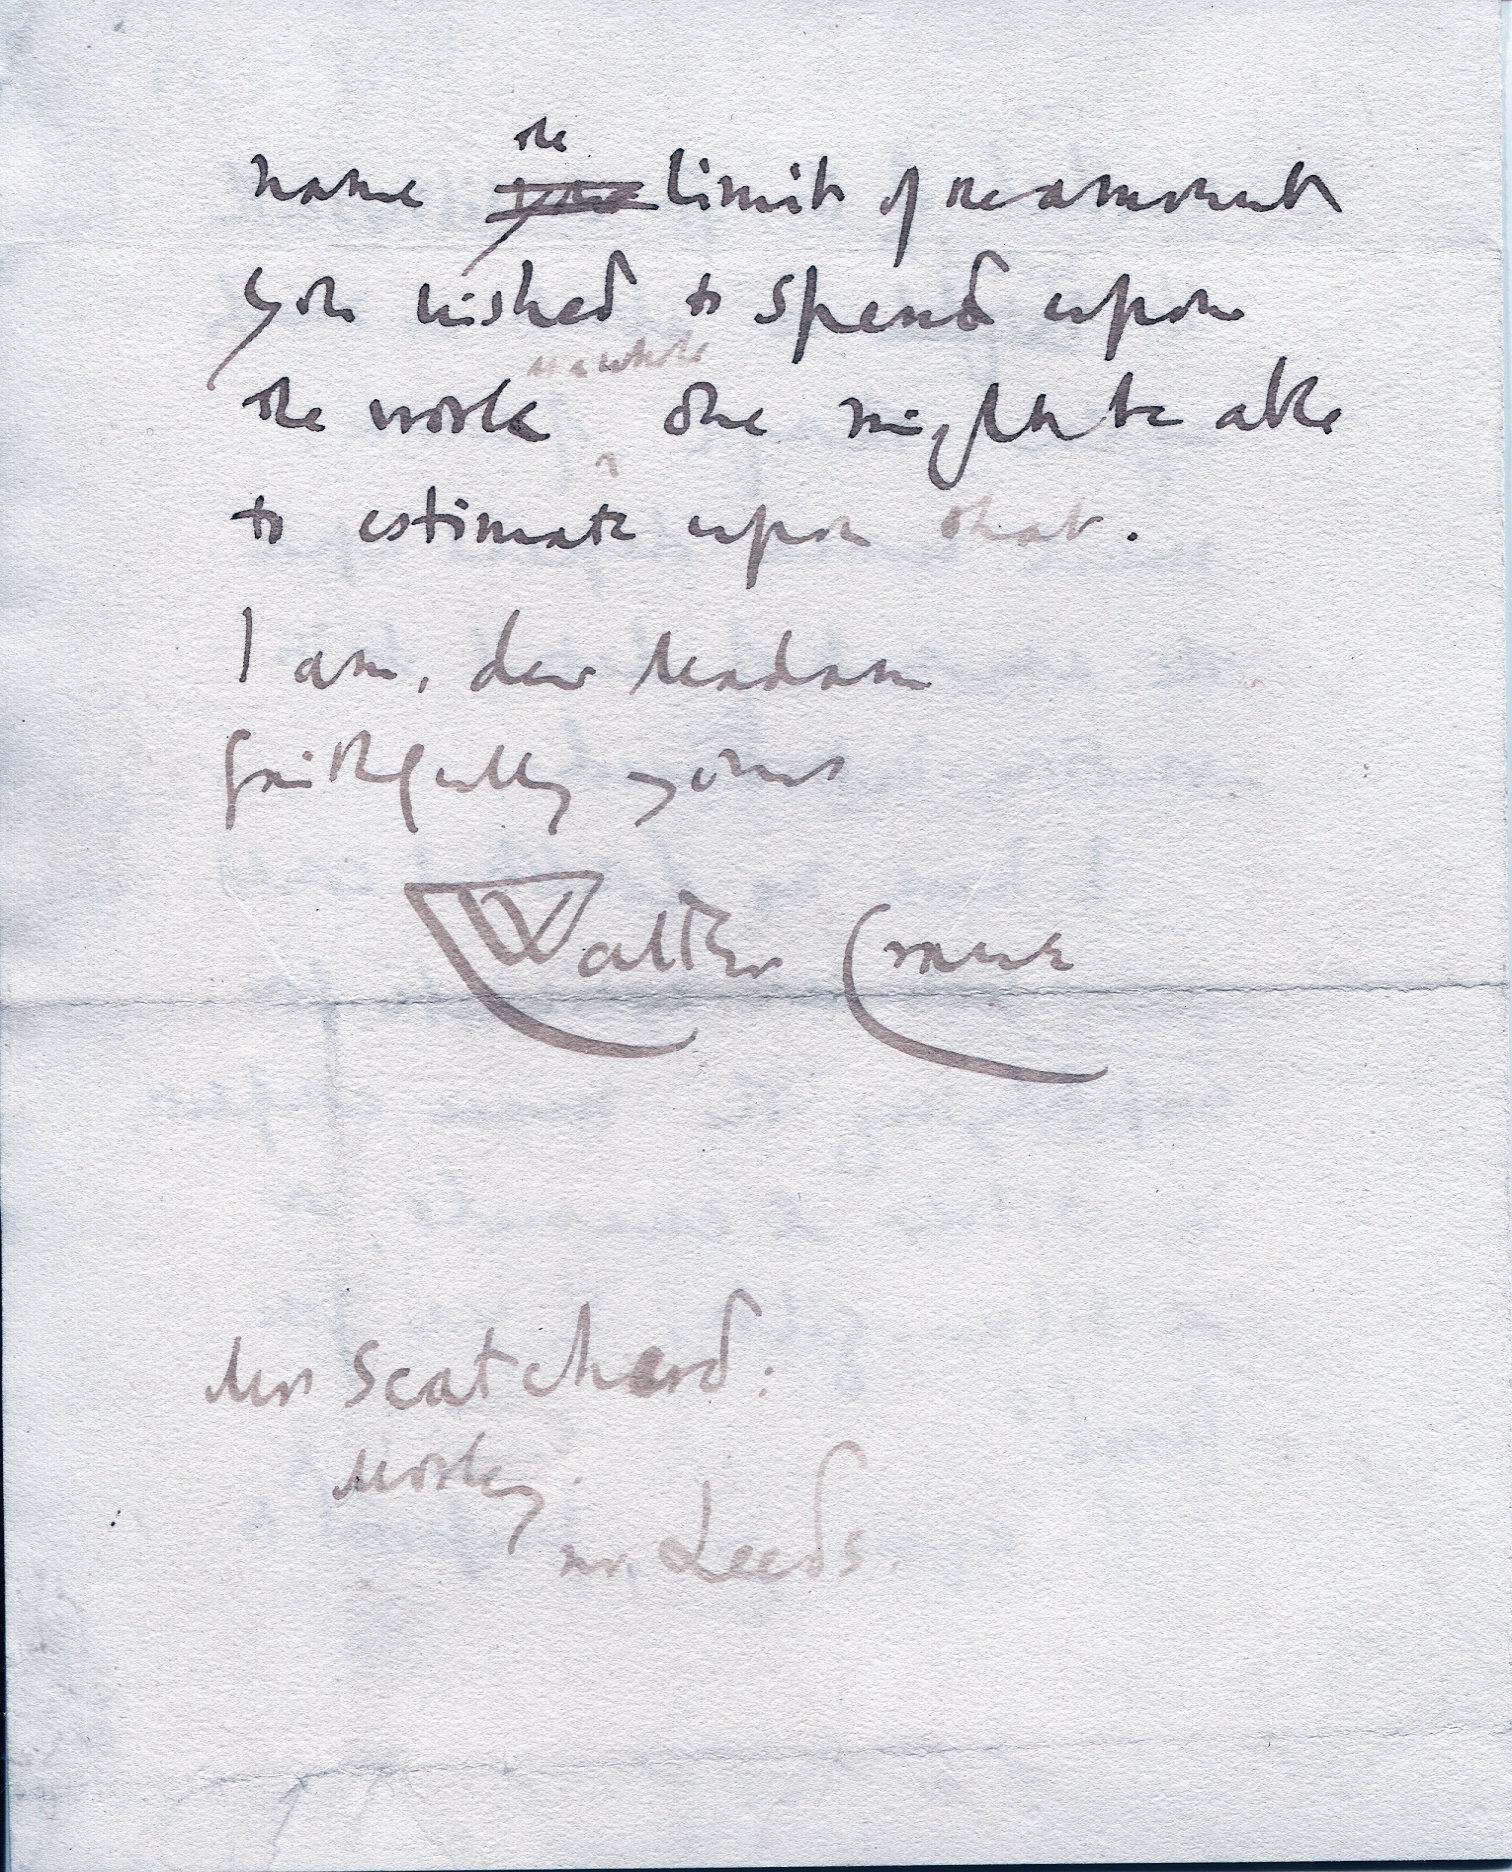 the
name your limit of the amount
you wished to spend upon
as a whole
the work one might be able
to estimate upon that.
I am, dear Madam
faithfully yours
Walter Crane
Mrs Scatcherd:
Morley.
nr. Leeds.